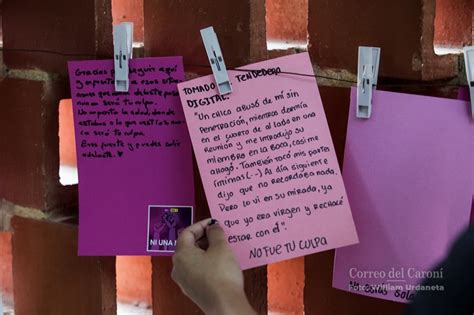 Gracias por seguir aquí
nunca será tu culpa.
Eres fuerte y puedes salir
adelante. ♥
NI UNA
TOMADO DEL TENDEDERO
DIGITAL:
"Un chico abusó de mí sin
penetración, mientras dormía
en el cuarto de al lado en una
reunión y me introdujo su
miembro en la boca, casi me
ahogó. También tocó mis partes
íntimas (...) Al día siguiente
dijo que no recordaba nada.
Pero lo vi en su mirada, ya
que yo era virgen y rechacé
estar con él".
NO FUE TU CULPA
No estás sola
Correo del Caroní
Foto: William Urdaneta